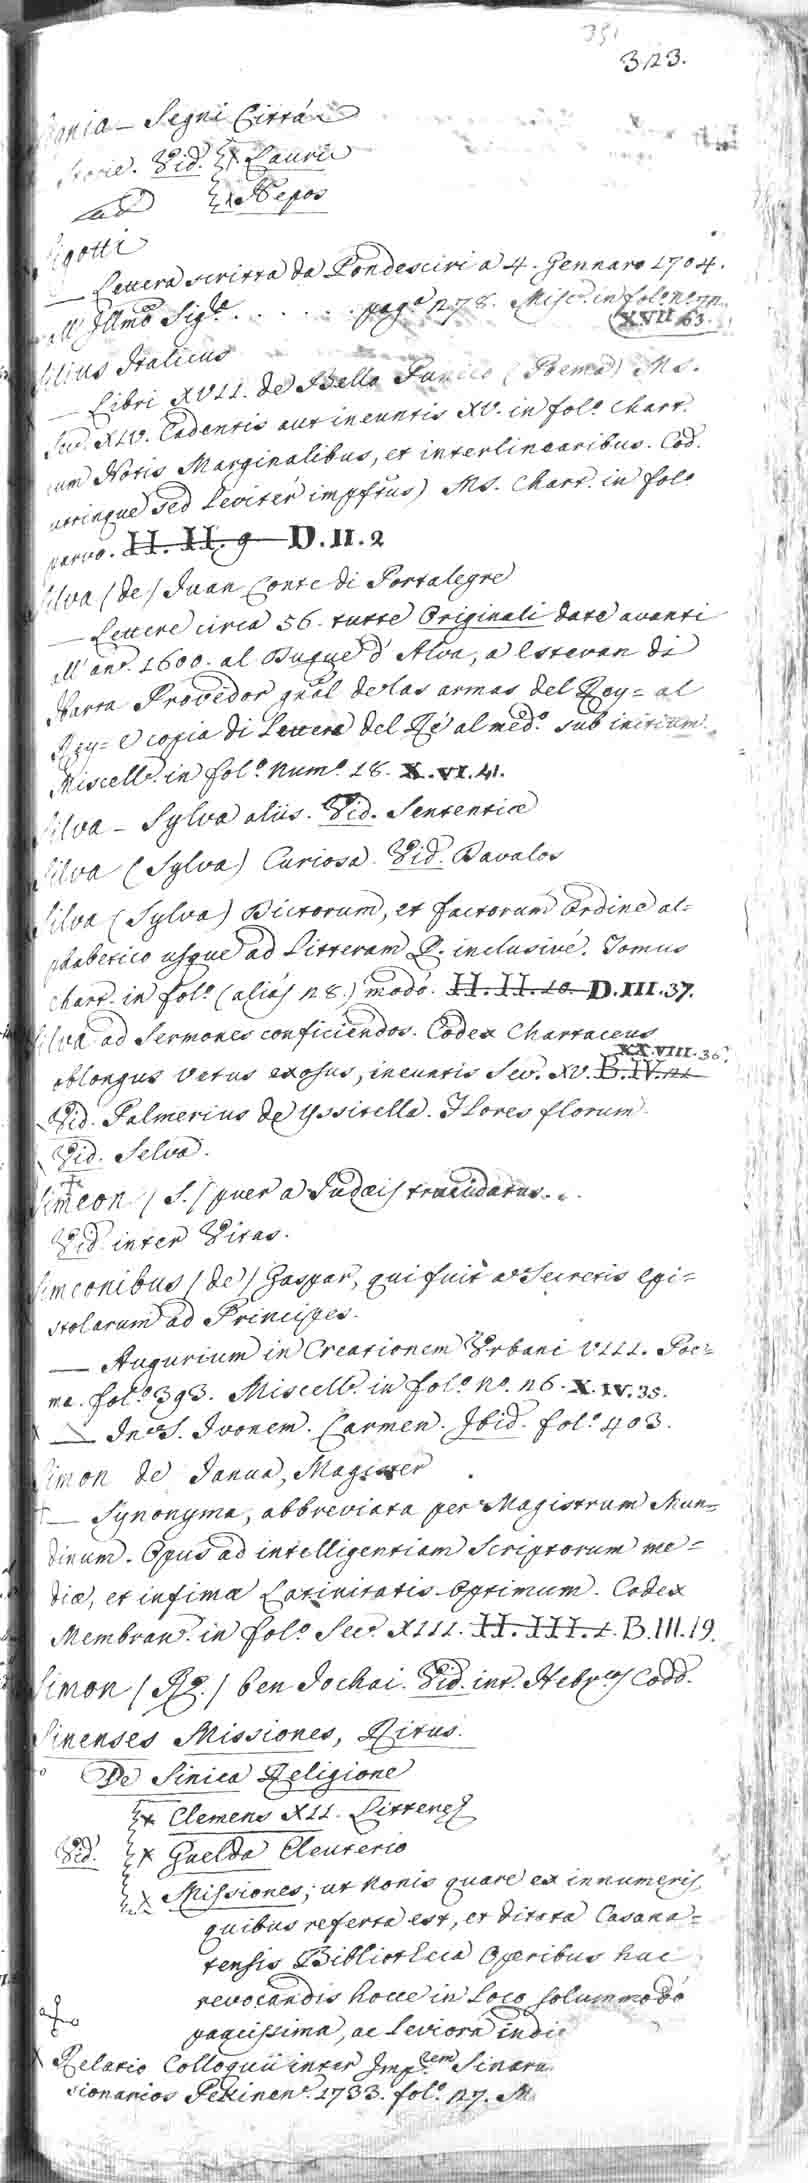 351
323.
Signia – Segni Città
Storie. Vid. x Lauri
x Nepos
Sigotti
— Lettera scritta da Pondesciri a 4. Gennaro 1704.
all' Illmo Sigre . . . . . . . paga 278. Misc. in folo. No. 72.
XVII 63.
Silius Italicus
— Libri XVII. de Bello Punico (Poema) Ms.
Sec. XIV. Cadentis aut ineuntis XV. in folo. Chart.
cum Notis Marginalibus, et interlinearibus. Cod.
utrinque sed leviter impftus) Ms. Chart. in folo.
parvo. H. II. 9 D.II.2
Silva (de) Juan Conte di Portalegre
— Lettere circa 56. tutte Originali date avanti
all' ano. 1600. al Duque d' Alva, a Estevan di
Ibarra Provedor gñal de las armas del Rey = al
Rey = e copia di lettera del Rè al medo. sub initium.
Miscello. in folo. Numo. 18. X.VI.41.
Silva – Sylva aliis. Vid. Sententiæ
Silva (Sylva) Curiosa. Vid. Davalos
Silva (Sylva) Dictorum, et factorum Ordine al=
phabetico usque ad Litteram P. inclusivè. Tomus
Chart. in folo. (aliàs 28.) modò. H. II. 10. D.III.37.
Silva ad Sermones conficiendos. Codex Chartaceus
oblongus vetus exosus, ineuntis Sec. XV. B.IV.21
XX.VIII.36.
Vid. Palmerius de Yssitella. Flores florum.
Vid. Selva.
Simeon (S.) puer a Judæis trucidatus...
Vid. inter Vitas.
Simeonibus (de) Gaspar, qui fuit a Secretis Epi=
stolarum ad Principes.
— Augurium in Creationem Urbani VIII. Poe=
ma. folo. 393. Miscello. in folo. No. 26. X.IV.35.
— In S. Ivonem. Carmen. Ibid. folo. 403.
Simon de Janua, Magister
— Synonyma, abbreviata per Magistrum Mun=
dinum. Opus ad intelligentiam Scriptorum me=
diæ, et infimæ Latinitatis optimum. Codex
Membrano. in folo. Sec. XIII. H.III.1. B.III.19.
Simon (R.) ben Jochai. Vid. int. Hebros Codd.
Sinenses Missiones, Ritus.
De Sinica Religione
x Clemens XII. Litteræ
Vid. x Guelda Eleuterio
x Missiones; ut nonis quare ex innumeris,
quibus referta est, et ditata Casana=
tensis Bibliotheca Operibus huc
revocandis hocce in loco solummodò
paucissima, ac leviora
x Relatio Colloquii inter Imprem Sinaru
sionarios Pekineno. 1733. folo. 27. M